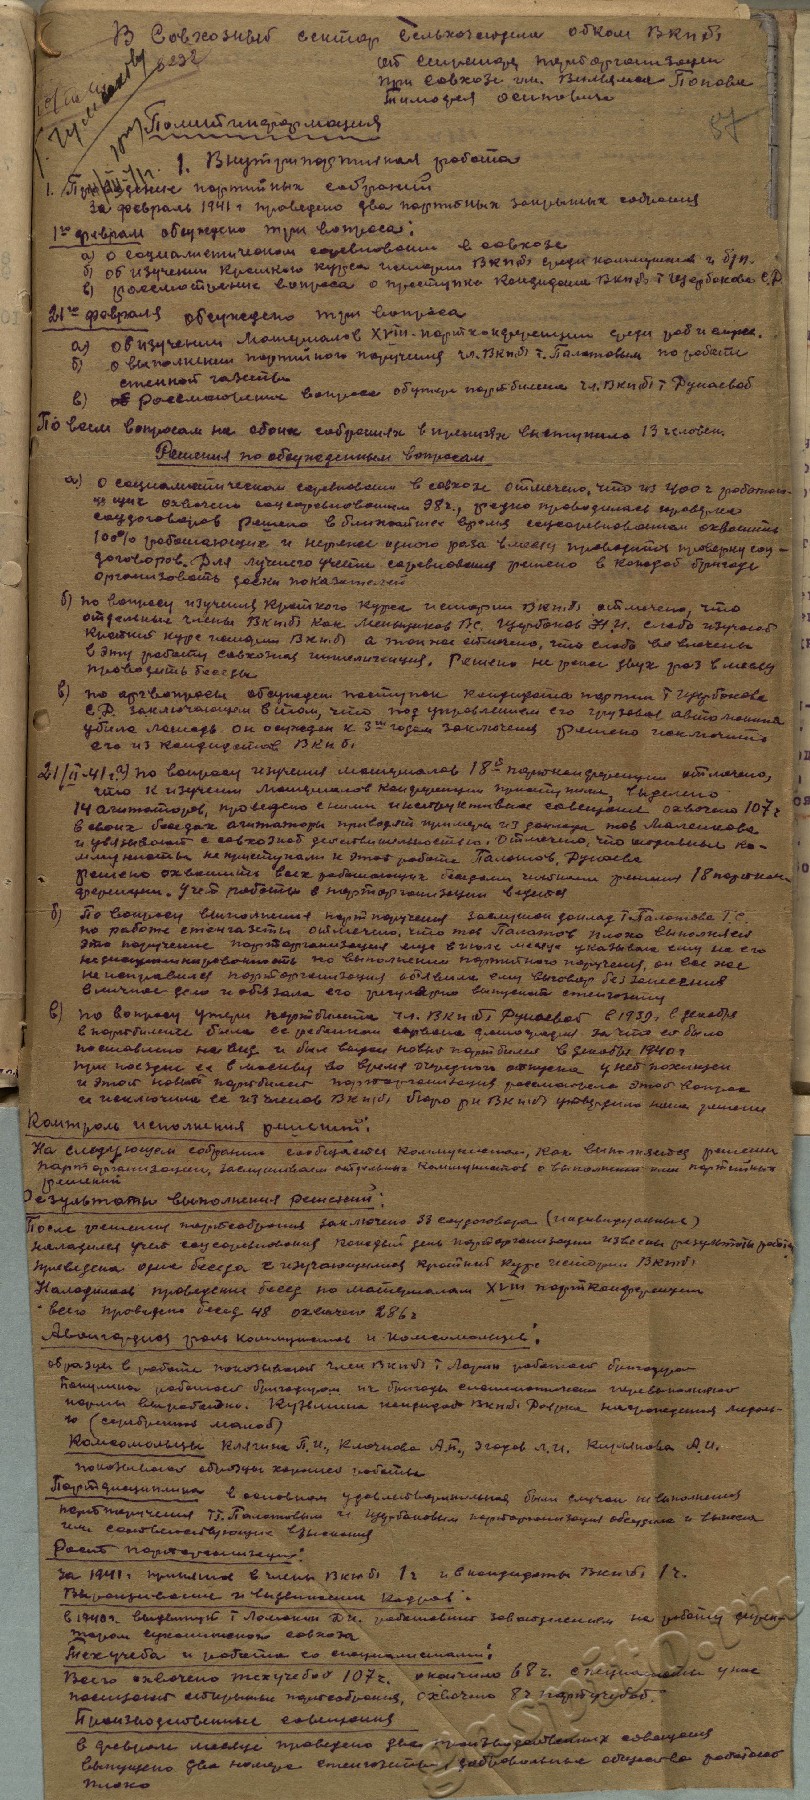 В Совхозный сектор Сельхозотдела обком ВКП(б)
от секретаря парторганизации
при совхозе им. Вильямса Попова
Тимофея Осиповича
87
Политинформация
1. Внутрипартийная работа
1. Проведение партийных собраний
За февраль 1941 г проведено два партийных закрытых собрания
1го февраля обсуждено три вопроса:
а) о социалистическом соревновании в совхозе
б) об изучении Краткого курса истории ВКП(б) среди коммунистов и б/п.
в) рассмотрение вопроса о проступке кандидата ВКП(б) т Щербакова С.Д.
21го февраля обсуждено три вопроса
а) об изучении материалов XVIII партконференции среди раб и служ.
б) о выполнении партийного поручения чл. ВКП(б) т. Палатовым по работе
стенной газеты
в) Рассмотрение вопроса об утере партбилета чл. ВКП(б) т Дунаевой
По всем вопросам на обоих собраниях в прениях выступило 13 человек.
Решения по обсужденным вопросам
а) о социалистическом соревновании в совхозе отмечено, что из 400 ч работаю-
щих охвачено соцсоревнованием 98 г., редко проводилась проверка
соцдоговоров решено в ближайшее время соцсоревнованием охватить
100% работающих и не реже одного раза в месяц проводить проверку соц-
договоров. Для лучшего учета соревнования решено в каждой бригаде
организовать доски показателей
б) по вопросу изучения Краткого курса истории ВКП(б) отмечено, что
отдельные члены ВКП(б) как Меньщиков В.С. Щербаков Н.И. слабо изучают
краткий курс истории ВКП(б) а также отмечено, что слабо вовлечена
в эту работу совхозная интеллигенция. Решено не реже двух раз в месяц
проводить беседы
в) по 3му вопросу обсужден поступок кандидата партии т Щербакова
С.Д. заключающем в том, что под управлением его грузовая автомашина
убила лошадь. он осужден к 3м годам заключения решено исключить
его из кандидатов ВКП(б)
21/II-41 г. а) по вопросу изучения материалов 18й партконференции отмечено,
что к изучению материалов конференции приступили, выделено
14 агитаторов, проведено с ними инструктивное совещание охвачено 107 ч
в своих беседах агитаторы приводят примеры из доклада тов Маленкова
и увязывают с совхозной действительностью. Отмечено, что отдельные ко-
ммунисты не приступили к этой работе Палатов, Дунаева
решено охватить всех работающих беседами читками решения 18 парткон-
ференции. Учет работы в парторганизации ведется
б) По вопросу выполнения партпоручения заслушан доклад т Палатова Г.С.
по работе стенгазеты отмечено, что тов Палатов плохо выполняет
это поручение парторганизация еще в июле месяце указывала ему на его
недисциплинированность по выполнению партийного поручения, он все же
не исправился парторганизация объявила ему выговор без занесения
в личное дело и обязала его регулярно выпускать стенгазету
в) по вопросу утери партбилета чл. ВКП(б) Дунаевой в 1939 г. в декабре
в партбилете была ее ребенком сорвана фотография за что ей было
поставлено на вид и был выдан новый партбилет в декабре 1940 г
при поездке ее в Москву во время очередного отпуска у ней похищен
и этот новый партбилет парторганизация рассмотрела этот вопрос
и исключила ее из членов ВКП(б) бюро РК ВКП(б) утвердило наше решение
Контроль исполнения решений:
На следующем собрании сообщается коммунистам, как выполняется решение
парторганизации, заслушиваем отдельных коммунистов о выполнении ими партийных
решений
Результаты выполнения решений:
После решения партсобрания заключено 33 соцдоговора (индивидуальных)
наладился учет соцсоревнования каждый день парторганизации известны результаты работы
проведена одна беседа с изучающими краткий курс истории ВКП(б)
Наладилось проведение бесед по материалам XVIII партконференции
всего проведено бесед 48 охвачено 286 ч
Авангардная роль коммунистов и комсомольцев:
образцы в работе показывают член ВКП(б) т Ларин работает бригадиром
работает бригадиром их бригады систематически перевыполняют
нормы выработки. Кузьмина кандидат ВКП(б) Доярка награждена медаль-
ю (серебряной малой)
Комсомольцы Клягина П.И., Клочкова А.П., Егоров Л.И. Кирьянова А.И.
показывают образцы хорошей работы
Партдисциплина в основном удовлетворительная были случаи невыполнения
партпоручения тт. Палатовым и Щербаковым парторганизация обсудила и вынесла
им соответствующие взыскания
Рост парторганизации:
За 1941 г принято в члены ВКП(б) 1 ч и в кандидаты ВКП(б) 1 ч.
Выращивание и выдвижение кадров:
в 1940 г. выдвинут т Ломакин работавший завотделением на работу дирек-
тором совхоза
Техучеба и работа со специалистами:
Всего охвачено техучебой 107 ч. окончило 68 ч. специалисты у нас
посещают открытые партсобрания, охвачено 8 ч партучебой.
Производственные совещания
в феврале месяце проведено два производственных совещания
выпущено два номера стенгазеты, добровольные общества работают
плохо
gaspito.ru